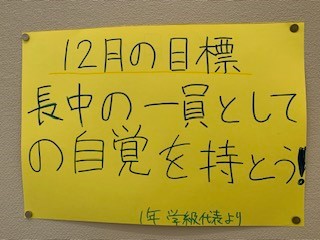 12月の目標
長中の一員として
の自覚を持とう!
1年 学級代表より